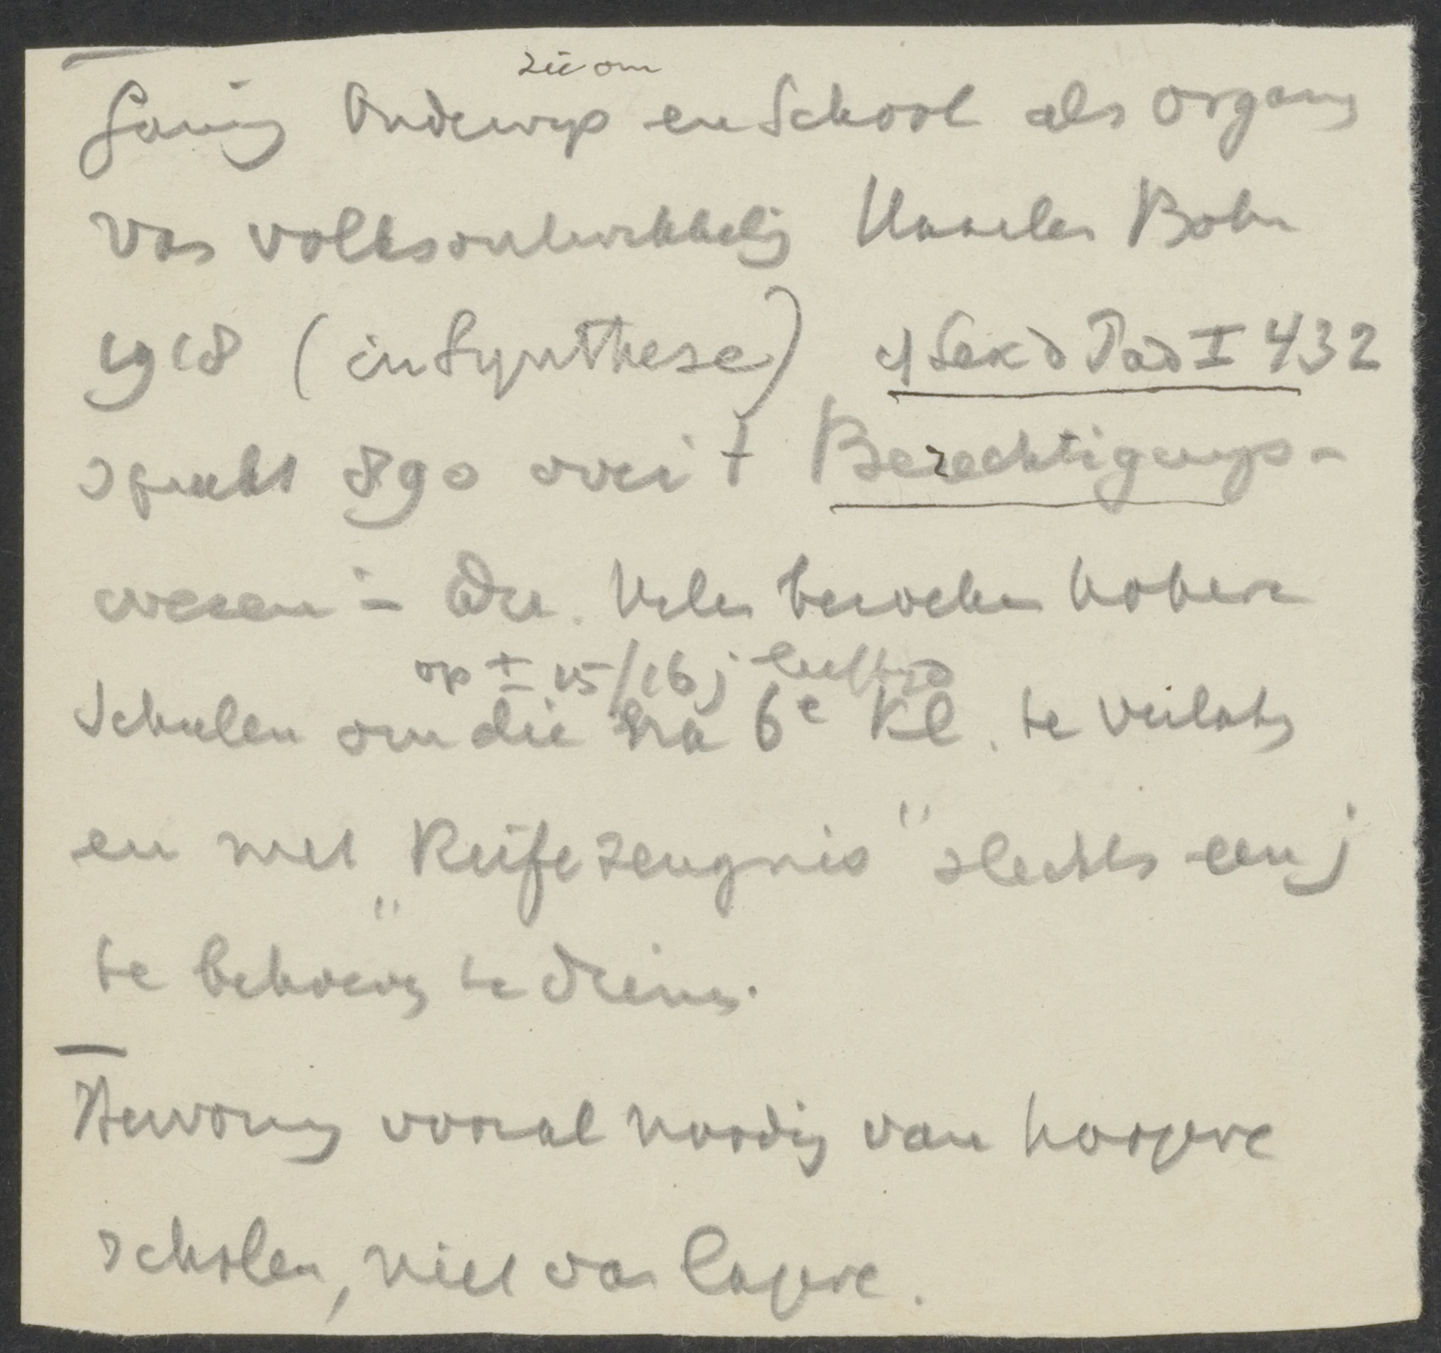 zie om
Gunning Onderwijs en School als organen
van volksontwikkeling Haarlem Bohn
1918 (in Synthese) cf Lex d Päd I 432
spreekt 890 over 't Berechtigungs-
wesen = Die. Velen bezoeken hohere
op ± 15/16 j leeftijd
Schulen om die na 6e Kl. te verlaten
en met "Reifezeugnis" slechts een j
te behoeven te dienen.
Hervorming vooral noodig van hoogere
scholen, niet van lagere.